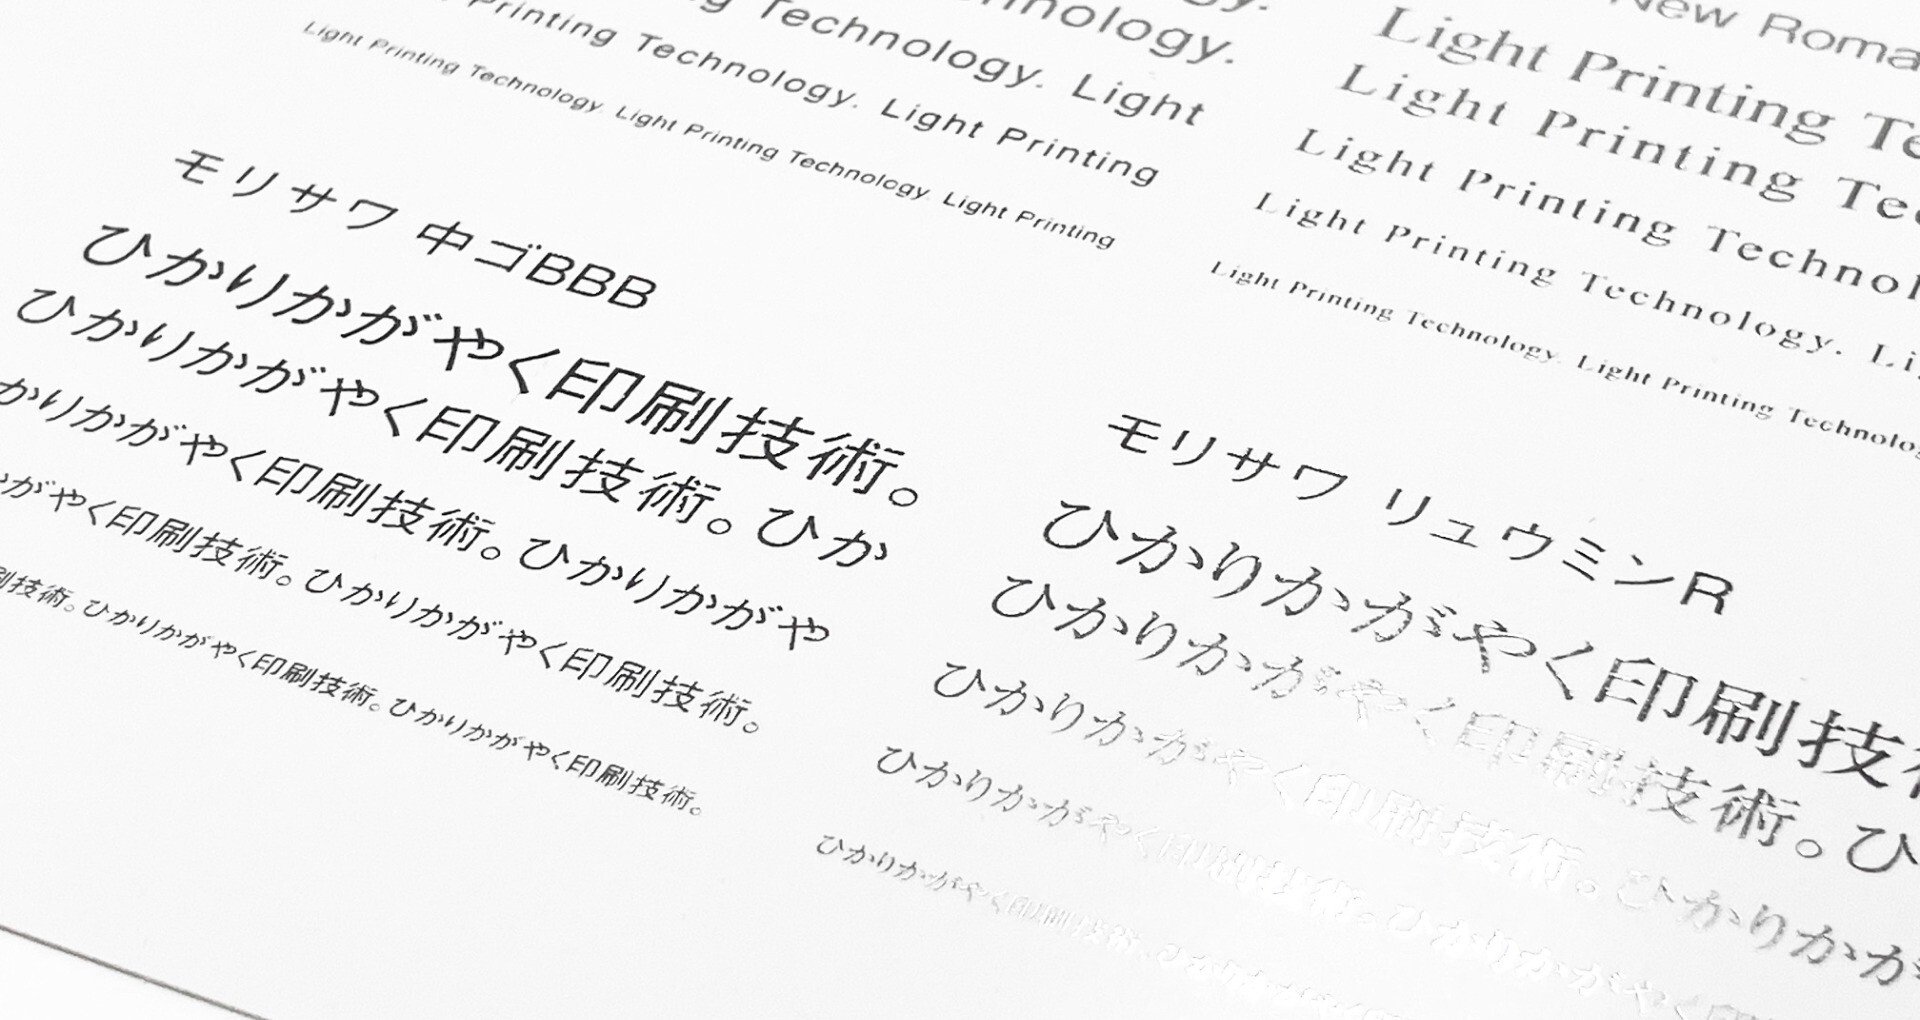 Technology.
Technology. Light
Printing Technology. Light Printing
Light Printing Technology. Light Printing Technology. Light Printing
モリサワ 中ゴBBB
ひかりかがやく印刷技術。
ひかりかがやく印刷技術。ひか
かりかがやく印刷技術。ひかりかがや
がやく印刷技術。ひかりかがやく印刷技術。
刷技術。ひかりかがやく印刷技術。ひかりかがやく印刷技術。
New Roma
Light Printing Te
Light Printing Tec
Light Printing Technol
Light Printing Technology. Li
Light Printing Technology. Light Printing Technolo
モリサワ リュウミンR
ひかりかがやく印刷技
ひかりかがやく印刷技術。ひ
ひかりかがやく印刷技術。ひかりかが
ひかりかがやく印刷技術。ひかりかがやく
ひかりかがやく印刷技術。